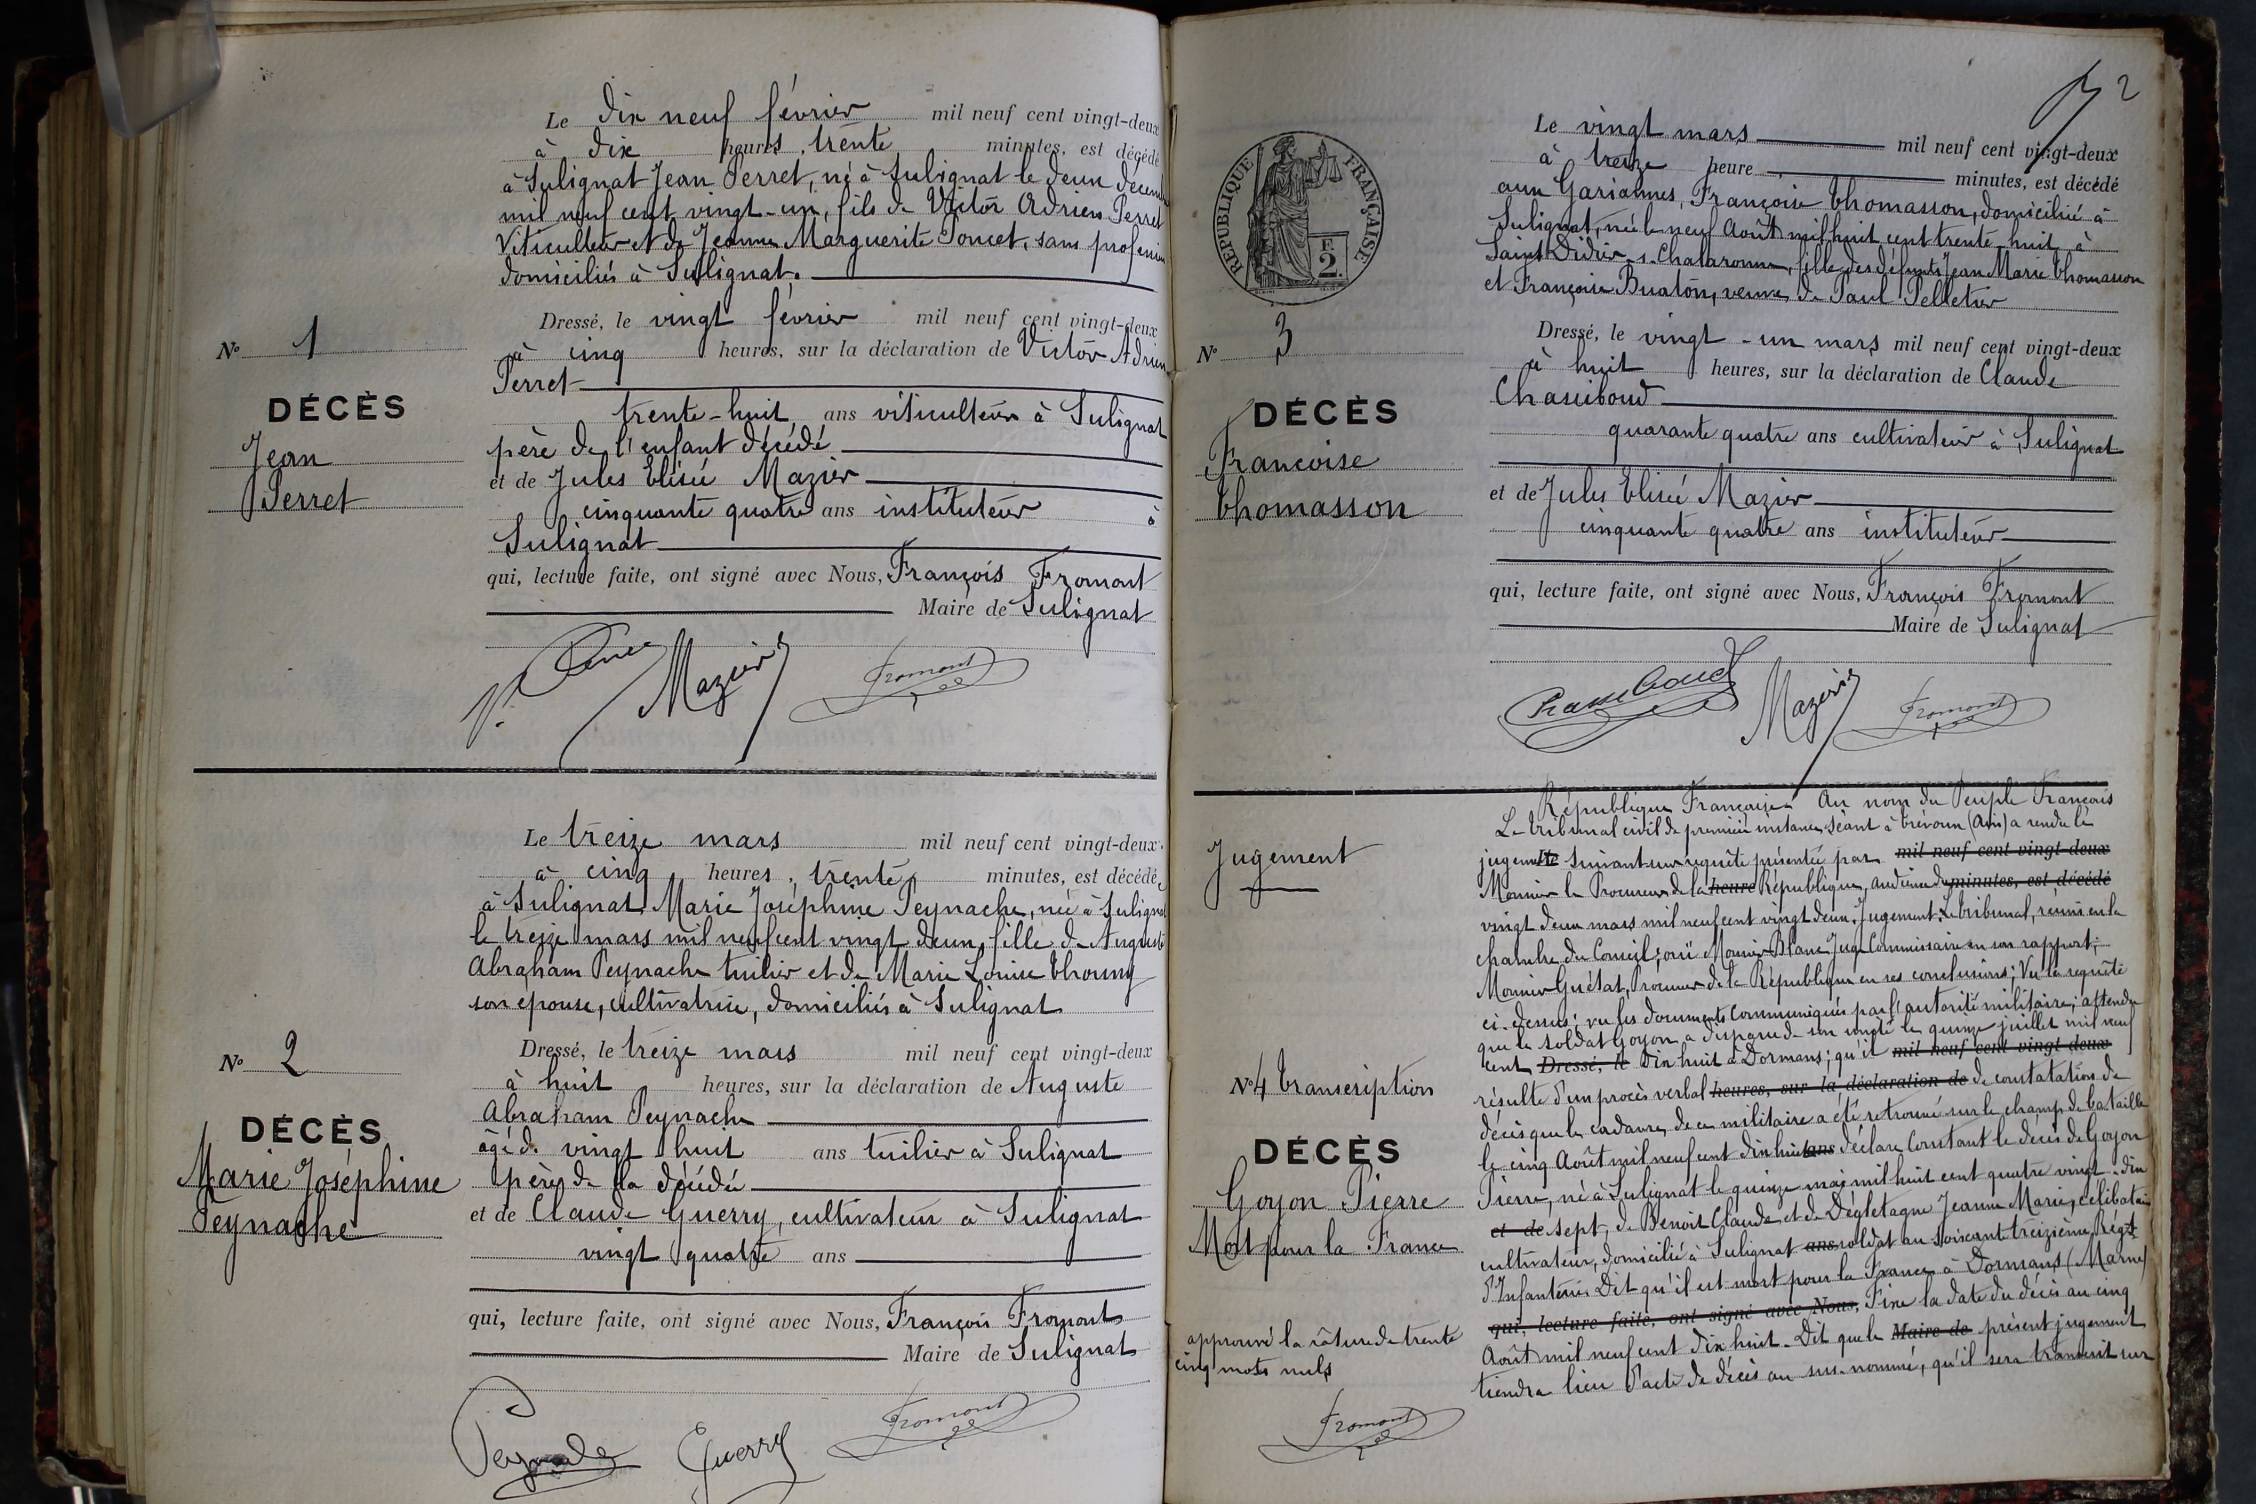 Le dix neuf février mil neuf cent vingt-deux
à dix heures, trente minutes, est décédé
à Sulignat Jean Perret, né à Sulignat le deux décemb
mil neuf cent vingt-un, fils de Victor Adrien Perret
Viticulteur et de Jeanne Marguerite Poncet, sans profession
domiciliés à Sulignat.
Dressé, le vingt février mil neuf cent vingt-deux
N° 1
à cinq heures, sur la déclaration de Victor Adrien
Perret
DÉCÈS
Jean
Perret
trente-huit ans viticulteur à Sulignat
père de l'enfant décédé
et de Jules Elisée Mazier
cinquante quatre ans instituteur à
Sulignat
qui, lecture faite, ont signé avec Nous, François Fromont
Maire de Sulignat
V. Perret Mazier Fromont
Le treize mars mil neuf cent vingt-deux
à cinq heures, trente minutes, est décédé
à Sulignat Marie Joséphine Peynache, née à Sulignat
le treize mars mil neuf cent vingt deux, fille de Auguste
Abraham Peynache tuilier et de Marie Louise
son épouse, cultivatrice, domiciliés à Sulignat
Dressé, le treize mars mil neuf cent vingt-deux
N° 2
à huit heures, sur la déclaration de Auguste
Abraham Peynache
DÉCÈS
Marie Joséphine
Peynache
âgé de vingt huit ans tuilier à Sulignat
père de la décédée
et de Claude Guerry, cultivateur à Sulignat
vingt quatre ans
qui, lecture faite, ont signé avec Nous, François Fromont
Maire de Sulignat
Peynache Guerry Fromont
2
RÉPUBLIQUE FRANÇAISE
F.
2.
Le vingt mars mil neuf cent vingt-deux
à treize heure minutes, est décédé
aux Gariannes, Françoise Thomasson, domiciliée à
Sulignat, née le neuf Août mil huit cent trente-huit à
Saint Didier-s-Chalaronne, fille des défunts Jean Marie Thomasson
et Françoise Buaton, veuve de Paul Pelletier
Dressé, le vingt-un mars mil neuf cent vingt-deux
N° 3
à huit heures, sur la déclaration de Claude
Chassiboud
DÉCÈS
Françoise
Thomasson
quarante quatre ans cultivateur à Sulignat
et de Jules Elisée Mazier
cinquante quatre ans instituteur
qui, lecture faite, ont signé avec Nous, François Fromont
Maire de Sulignat
Chassiboud Mazier Fromont
Jugement
République Française Au nom du Peuple Français
Le tribunal civil de première instance, séant à Trévoux (Ain) a rendu le
jugement suivant sur requête présentée par mil neuf cent vingt-deux
Monsieur le Procureur de la heure République, audience du minutes, est décédé
vingt deux mars mil neuf cent vingt deux. Jugement. Le tribunal, réuni en la
chambre du Conseil; ouï Monsieur Blanc Juge Commissaire en son rapport;
Monsieur Guétat, Procureur de la République en ses conclusions; Vu la requête
ci-dessus; vu les documents communiqués par l'autorité militaire; attendu
que le soldat Goyon a disparu de son unité le quinze juillet mil neuf
cent Dressé, le dix huit à Dormans; qu'il mil neuf cent vingt-deux
N° 4 transcription
résulte d'un procès verbal heures, sur la déclaration de de constatation de
décès que le cadavre de ce militaire a été retrouvé sur le champ de bataille
DÉCÈS
Goyon Pierre
Mort pour la France
le cinq Août mil neuf cent dix huit ans déclare Constant le décès de Goyon
Pierre, né à Sulignat le quinze mai mil huit cent quatre vingt-dix
et de sept, de Benoît Claude et de Dégletagne Jeanne Marie, célibataire
cultivateur, domicilié à Sulignat ans soldat au soixante treizième Régt
d'Infanterie. Dit qu'il est mort pour la France à Dormans (Marne)
qui, lecture faite, ont signé avec Nous, Fixe la date du décès au cinq
Août mil neuf cent dix huit. Dit que le Maire de présent jugement
tiendra lieu d'acte de décès au sus-nommé, qu'il sera transcrit sur
approuvé la râture de trente
cinq mots nuls
Fromont